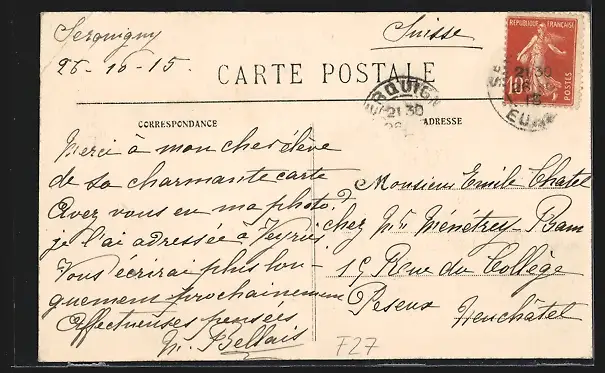 Serquigny
26-10-15.
Suisse
CARTE POSTALE
RÉPUBLIQUE FRANÇAISE
10
POSTES
21 30
21 30
CORRESPONDANCE
ADRESSE
Merci à mon cher élève
de sa charmante carte
Avez vous eu ma photo?
je l'ai adressée à Veyrier
Vous écrirai plus lon-
guement prochainement
Affectueuses pensées
Bellais
Monsieur Emile Chatel
chez Mr Ménétrey-Bam
15 Rue du Collège
Peseux
Neuchâtel
F27